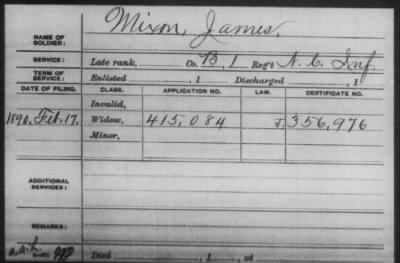 NAME OF SOLDIER: Mixon, James.
SERVICE: Late rank, Co. B, 1 Reg't N. C. Inf.
TERM OF SERVICE: Enlisted , 1 Discharged , 1
DATE OF FILING. CLASS. APPLICATION NO. LAW. CERTIFICATE NO.
Invalid,
1890, Feb. 17. Widow, 415,084 J. 356,976
Minor,
ADDITIONAL SERVICES:
REMARKS:
Died , 1 , at